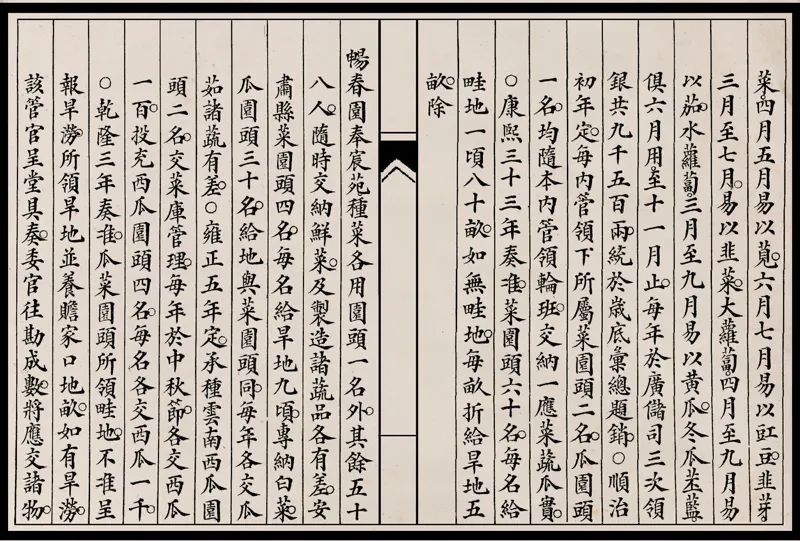 菜。四月五月易以莧。六月七月易以豇豆。韭芽
三月至七月。易以韭菜。大蘿蔔。四月至九月易
以茄。水蘿蔔。三月至九月易以黃瓜。冬瓜苤藍。
俱六月用。至十一月止。每年於廣儲司三次領
銀共九千五百兩。統於歲底彙總題銷。○順治
初年定。每內管領下所屬菜園頭二名。瓜園頭
一名。均隨本內管領輪班。交納一應菜蔬瓜實。
○康熙三十三年奏准。菜園頭六十名。每名給
畦地一頃八十畝。如無畦地。每畝折給旱地五
畝。除
暢春園奉宸苑。種菜各用園頭一名外。其餘五十
八人。隨時交納鮮菜。及製造諸蔬品各有差。安
肅縣菜園頭四名。每名給旱地九頃。專納白菜。
瓜園頭三十名。給地與菜園頭同。每年各交瓜
茹諸蔬有差。○雍正五年定。承種雲南西瓜園
頭二名。交菜庫管理。每年於中秋節。各交西瓜
一百。投充西瓜園頭四名。每名各交西瓜一千。
○乾隆三年奏准。瓜菜園頭所領畦地。不准呈
報旱澇。所領旱地並養贍家口地畝。如有旱澇。
該管官呈堂具奏。委官往勘成數。將應交諸物。